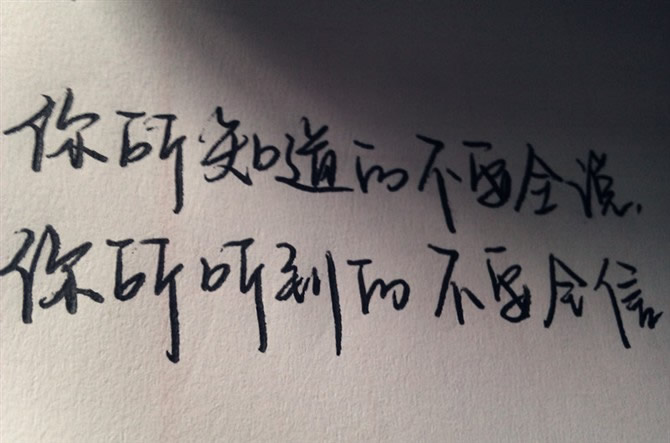 你所知道的不要全说，
你所听到的不要全信